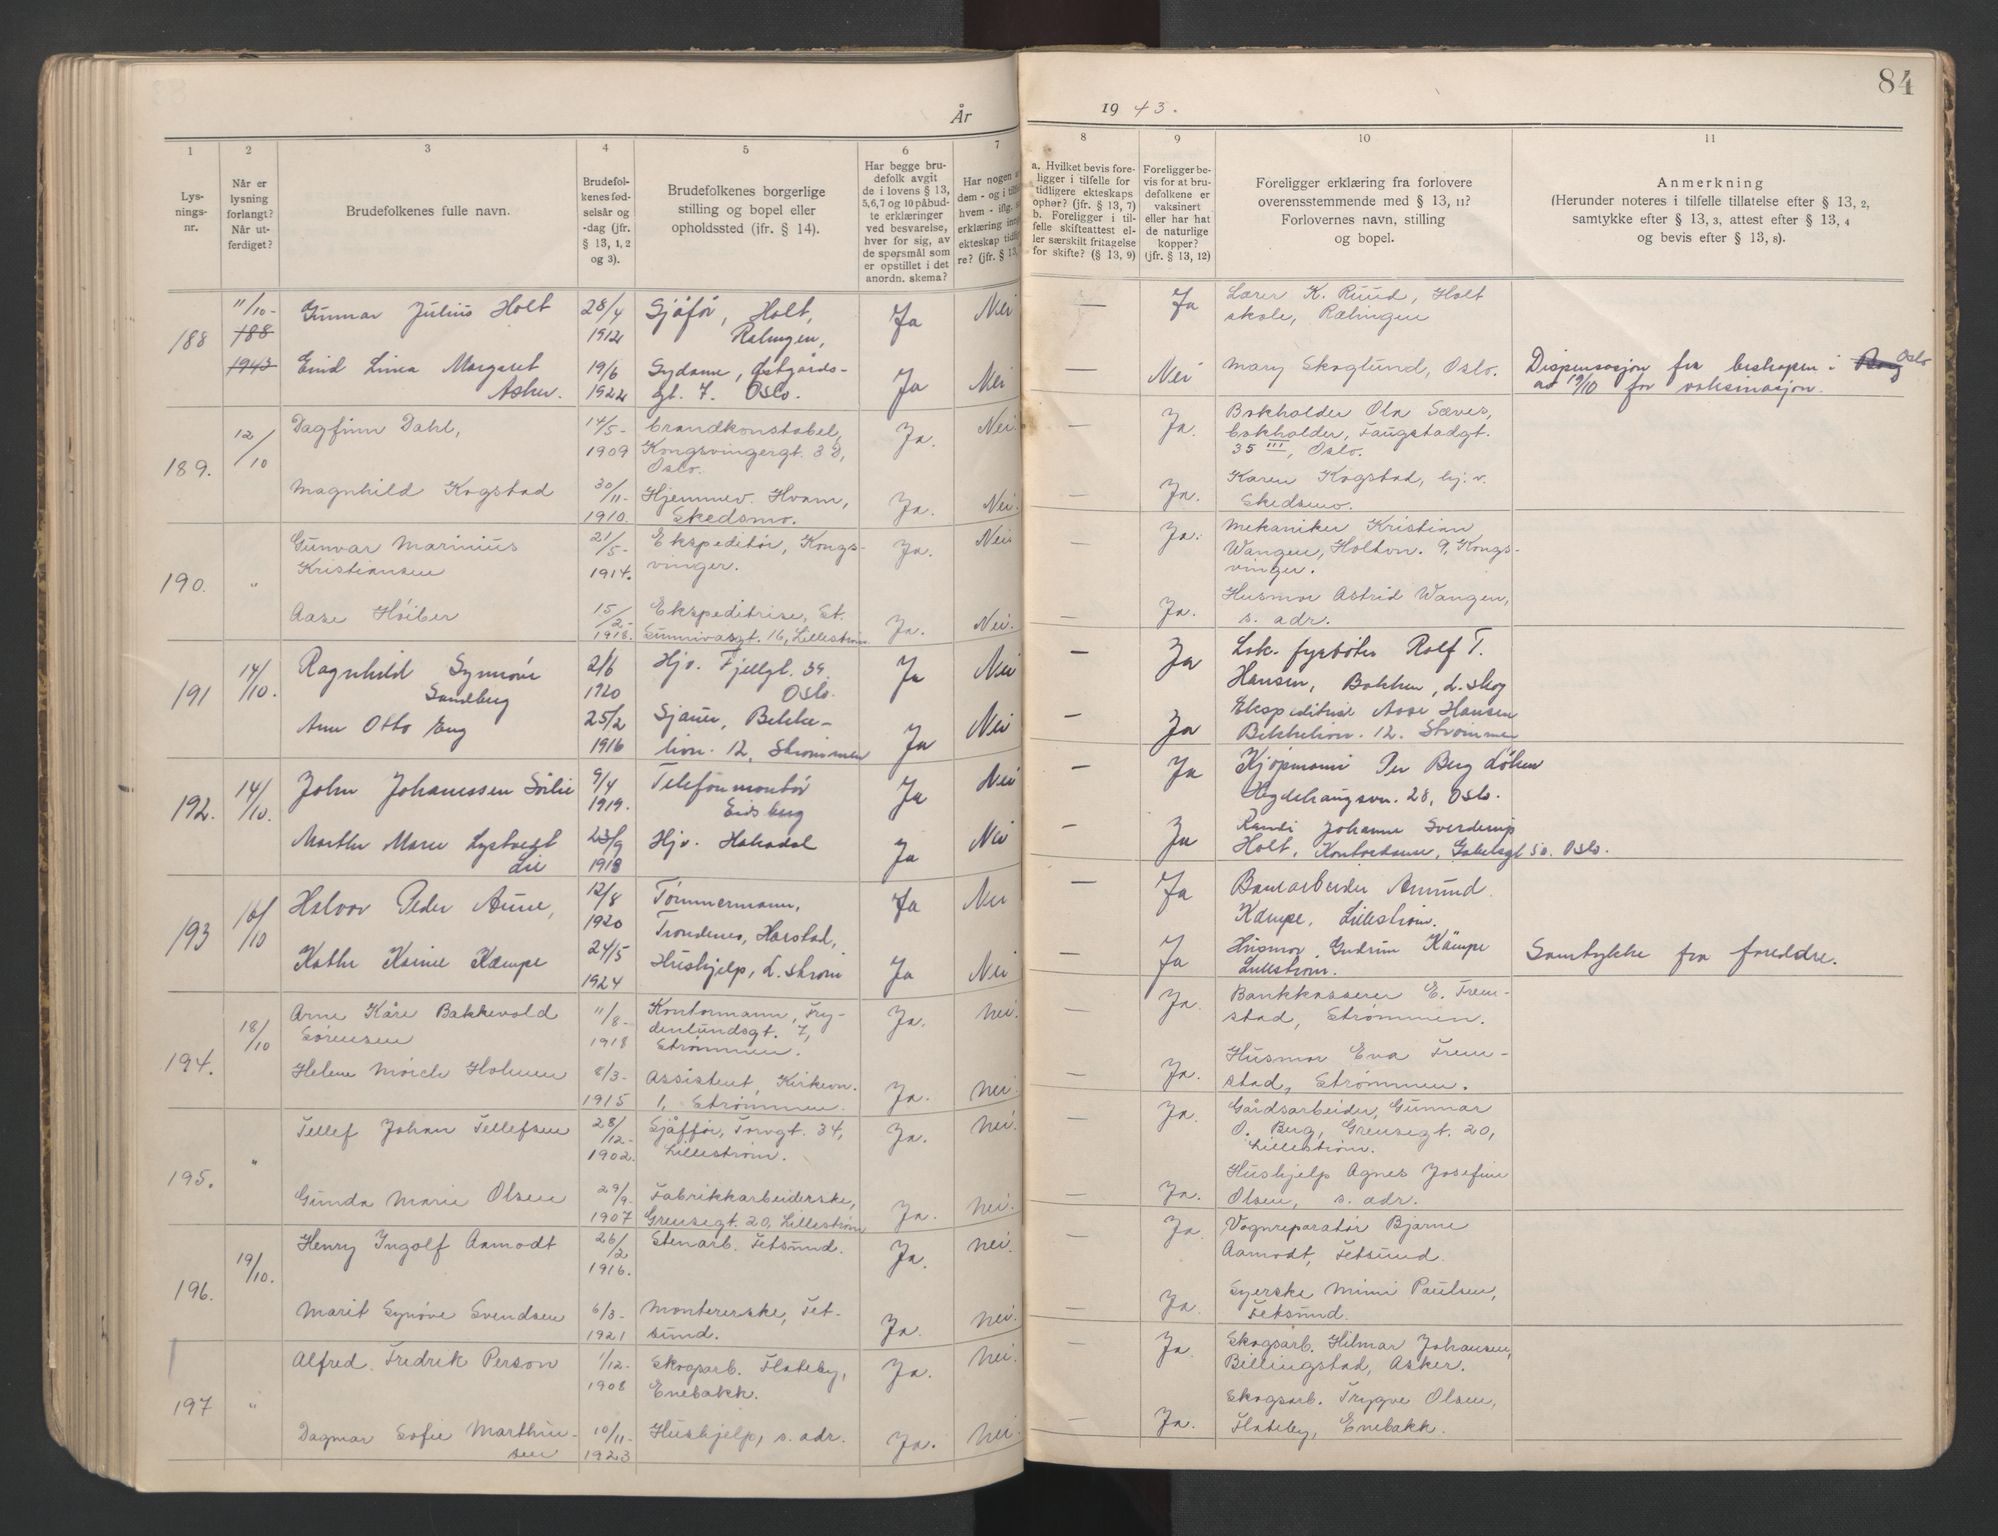 84
År
19 43.
1
2
3
4
5
6
7
8
9
10
11
Lys-
nings-
nr.
Når er
lysning
forlangt?
Når ut-
ferdiget?
Brudefolkenes fulle navn.
Brudefol-
kenes fød-
selsår og
-dag (jfr.
§ 13, 1, 2
og 3).
Brudefolkenes borgerlige
stilling og bopel eller
opholdssted (jfr. § 14).
Har begge bru-
defolk avgit
de i lovens § 13,
5,6,7 og 10 påbud-
te erklæringer
ved besvarelse,
hver for sig, av
de spørsmål som
er opstillet i det
anordn. skema?
Har nogen a
dem - og i
hvem - iflg.
erklæring inng
ekteskap tidlig
re? (jfr. § 13,
a. Hvilket bevis fore-
ligger i tilfelle for
tidligere ekteskaps
ophør? (jfr. § 13, 7)
b. Foreligger i til-
felle skifteattest el-
ler særskilt fritagelse
for skifte? (§ 13, 9)
Foreligger be-
vis for at bru-
defolkene er
vaksinert
eller har hat
de naturlige
kopper?
(jfr. § 13, 12)
Foreligger erklæring fra forlovere
overensstemmende med § 13, 11?
Forlovernes navn, stilling
og bopel.
Anmerkning
(Herunder noteres i tilfelle tillatelse efter § 13, 2,
samtykke efter § 13, 3, attest efter § 13, 4
og bevis efter § 13, 8).
188 11/10- 188 1943 Gunnar Julius Holt 28/4 1912 Sjåfør, Holt, Ja Nei — Ja Lærer K. Ruud, Holt
Rælingen, skole, Rælingen
Linea Margaret 19/6 1922 Sydame, Østgårds- Ja Nei — Nei Mary Skoglund, Oslo. Dispensasjon fra biskopen i Oslo
Asker. gt. 7. Oslo. av 19/10 for vaksinasjon.
189. 12/10 Dagfinn Dahl, 14/5- 1909 brandkonstabel, Ja. Nei. — Ja. Bokholder Ola Sæves,
Kongsvingergt. 3 D, bokholder, Faugstadgt.
Oslo. 35 III, Oslo.
Magnhild Kogstad 30/11- 1910. Hjemmev. Hvam, Ja. Nei. — Ja. Karen Kogstad, hj.v.
Skedsmo. Skedsmo.
190. " Gunvar Marinius 21/5- 1914. Ekspeditør, Kongs- Ja. Nei — Ja. Mekaniker Kristian
Kristiansen vinger. Wangen, Holtvn. 9, Kongs-
vinger.
Aase Høiber 15/2- 1918. Ekspeditrise, St. Ja. Nei. — Ja. Husmor Astrid Wangen,
Sunnivasgt. 16, Lillestrøm s. adr.
191 14/10. Ragnhild Synnøve 2/6 1920 Hjv. Fjellgt. 39. Ja Nei — Ja Lok. fyrbøter Rolf T.
Sandberg Oslo. Hansen, Bakken, L.skog
Arne Otto Eng 25/2 1916 Sjauer, Bekke- Ja Nei — Ja Ekspeditrise Aase Hansen
livn. 12, Strømmen Bekkelivn. 12. Strømmen
192. 14/10. John Johanssen Sørlie 9/4 1919. Telefonmontør Ja Nei — Ja Kjøpmann Per Berg Løken
Eidsberg Hegdehaugsvn. 28, Oslo.
Marthe Marie Lystvedt 23/9 1918 Hjv. Hakadal Ja Nei — Ja Randi Johanne Sverdrup
Lie Holt, Kontordame, Gabelsgt 50. Oslo.
193 16/10 Halvor Peder Aune, 12/8 1920 Tømmermann, Ja Nei — Ja Banearbeider Amund
Trondenes, Harstad, Kæmpe, Lillestrøm.
Kathe Karine Kæmpe 24/5 1924 Hushjelp, L.strøm Ja Nei — Ja Husmor Gudrun Kämpe Samtykke fra foreldre.
Lillestrøm.
194. 18/10 Arne Kåre Bakkevold 11/8- 1918 Kontormann, Fry- Ja. Nei. — Ja. Bankkasserer E. Trem-
Sørensen denlundsgt. 7, stad, Strømmen.
Strømmen.
Helene Mørch Holmen 8/3- 1915 Assistent, Kirkevn. Ja. Nei. — Ja. Husmor Eva Trem-
1, Strømmen. stad, Strømmen.
195. " Tellef Johan Tellefsen 28/12- 1902. Sjåffør, Torvgt. 34, Ja. Nei. — Ja. Gårdsarbeider, Gunnar
Lillestrøm. O. Berg, Grensegt. 20,
Lillestrøm.
Gunda Marie Olsen 29/9- 1907 Fabrikkarbeiderske, Ja. Nei. — Ja. Hushjelp Agnes Josefine
Grensegt. 20, Lillestrøm Olsen, s. adr.
196. 19/10. Henry Ingolf Aamodt 26/2 1916. Stenarb. Fetsund. Ja. Nei. — Ja Vognreparatør Bjarne
Aamodt, Fetsund.
Marit Synøve Svendsen 6/3- 1921 Montererske, Fet- Ja. Nei. — Ja. Syerske Mimi Paulsen,
sund. Fetsund.
197 " Alfred Fredrik Person 1/12- 1908 Skogsarb. Flateby, Ja. Nei. — Ja. Skogsarb. Hilmar Johansen,
Enebakk. Billingstad, Asker.
Dagmar Sofie Marthin- 10/11- 1923 Hushjelp, s. adr. Ja. Nei. — Ja. Skogsarb. Trygve Olsen,
sen Flateby, Enebakk.